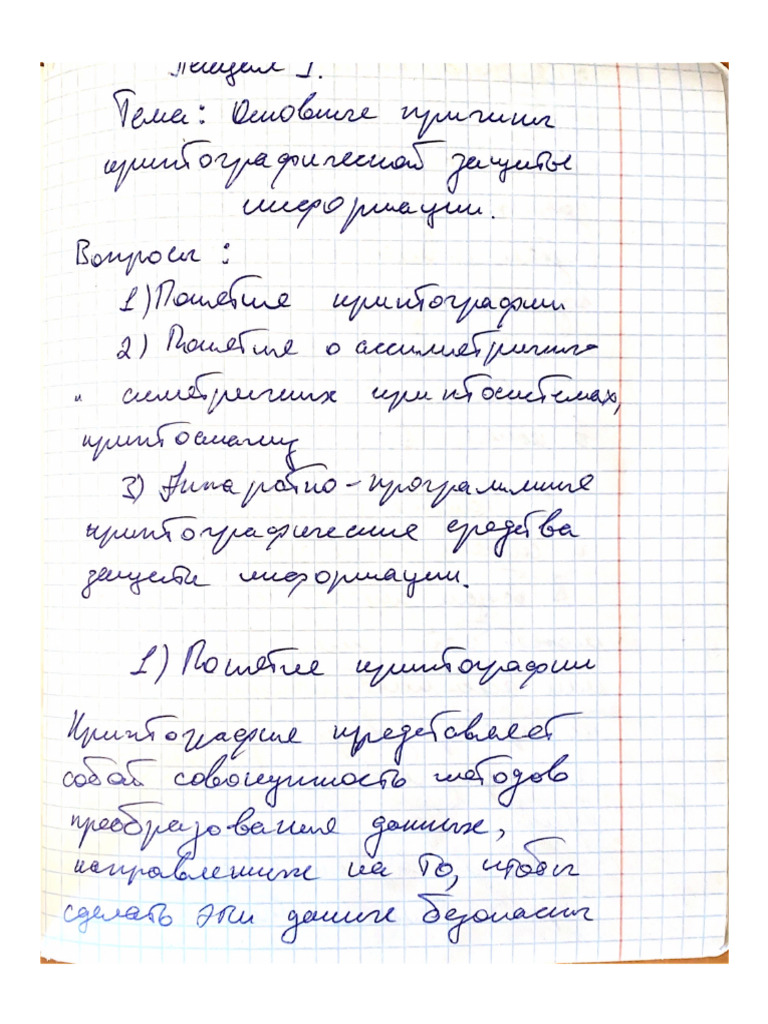 Лекция 1.
Тема: Основные причины
криптографической защиты
информации.
Вопросы:
1) Понятие криптографии
2) Понятие о ассиметрично
и симетричных криптосистемах,
криптоанализ
3) Аппаратно-программные
криптографические средства
защиты информации.
1) Понятие криптографии
Криптография представляет
собой совокупность методов
преобразования данных,
направленных на то, чтобы
сделать эти данные безопасны